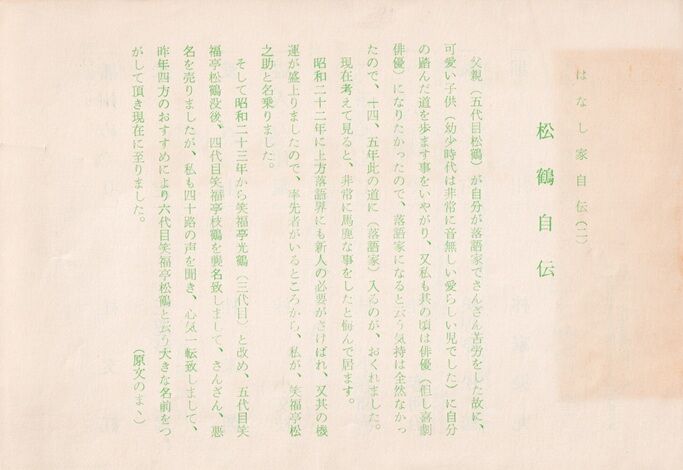 はなし家自伝（二）
松鶴自伝
父親（五代目松鶴）が自分が落語家でさんざん苦労をした故に、
可愛い子供（幼少時代は非常に音無しい愛らしい児でした）に自分
の踏んだ道を歩ます事をいやがり、又私も其の頃は俳優（但し喜劇
俳優）になりたかったので、落語家になると云う気持は全然なかっ
たので、十四、五年此の道に（落語家）入るのが、おくれました。
現在考えて見ると、非常に馬鹿な事をしたと悔んで居ます。
昭和二十二年に上方落語界にも新人の必要がさけばれ、又其の機
運が盛上りましたので、率先者がいるところから、私が、笑福亭松
之助と名乗りました。
そして昭和二十三年から笑福亭光鶴（三代目）と改め、五代目笑
福亭松鶴没後、四代目笑福亭枝鶴を襲名致しまして、さんざん、悪
名を売りましたが、私も四十路の声を聞き、心気一転致しまして、
昨年四方のおすすめにより六代目笑福亭松鶴と云う大きな名前をつ
がして頂き現在に至りました。
（原文のまゝ）